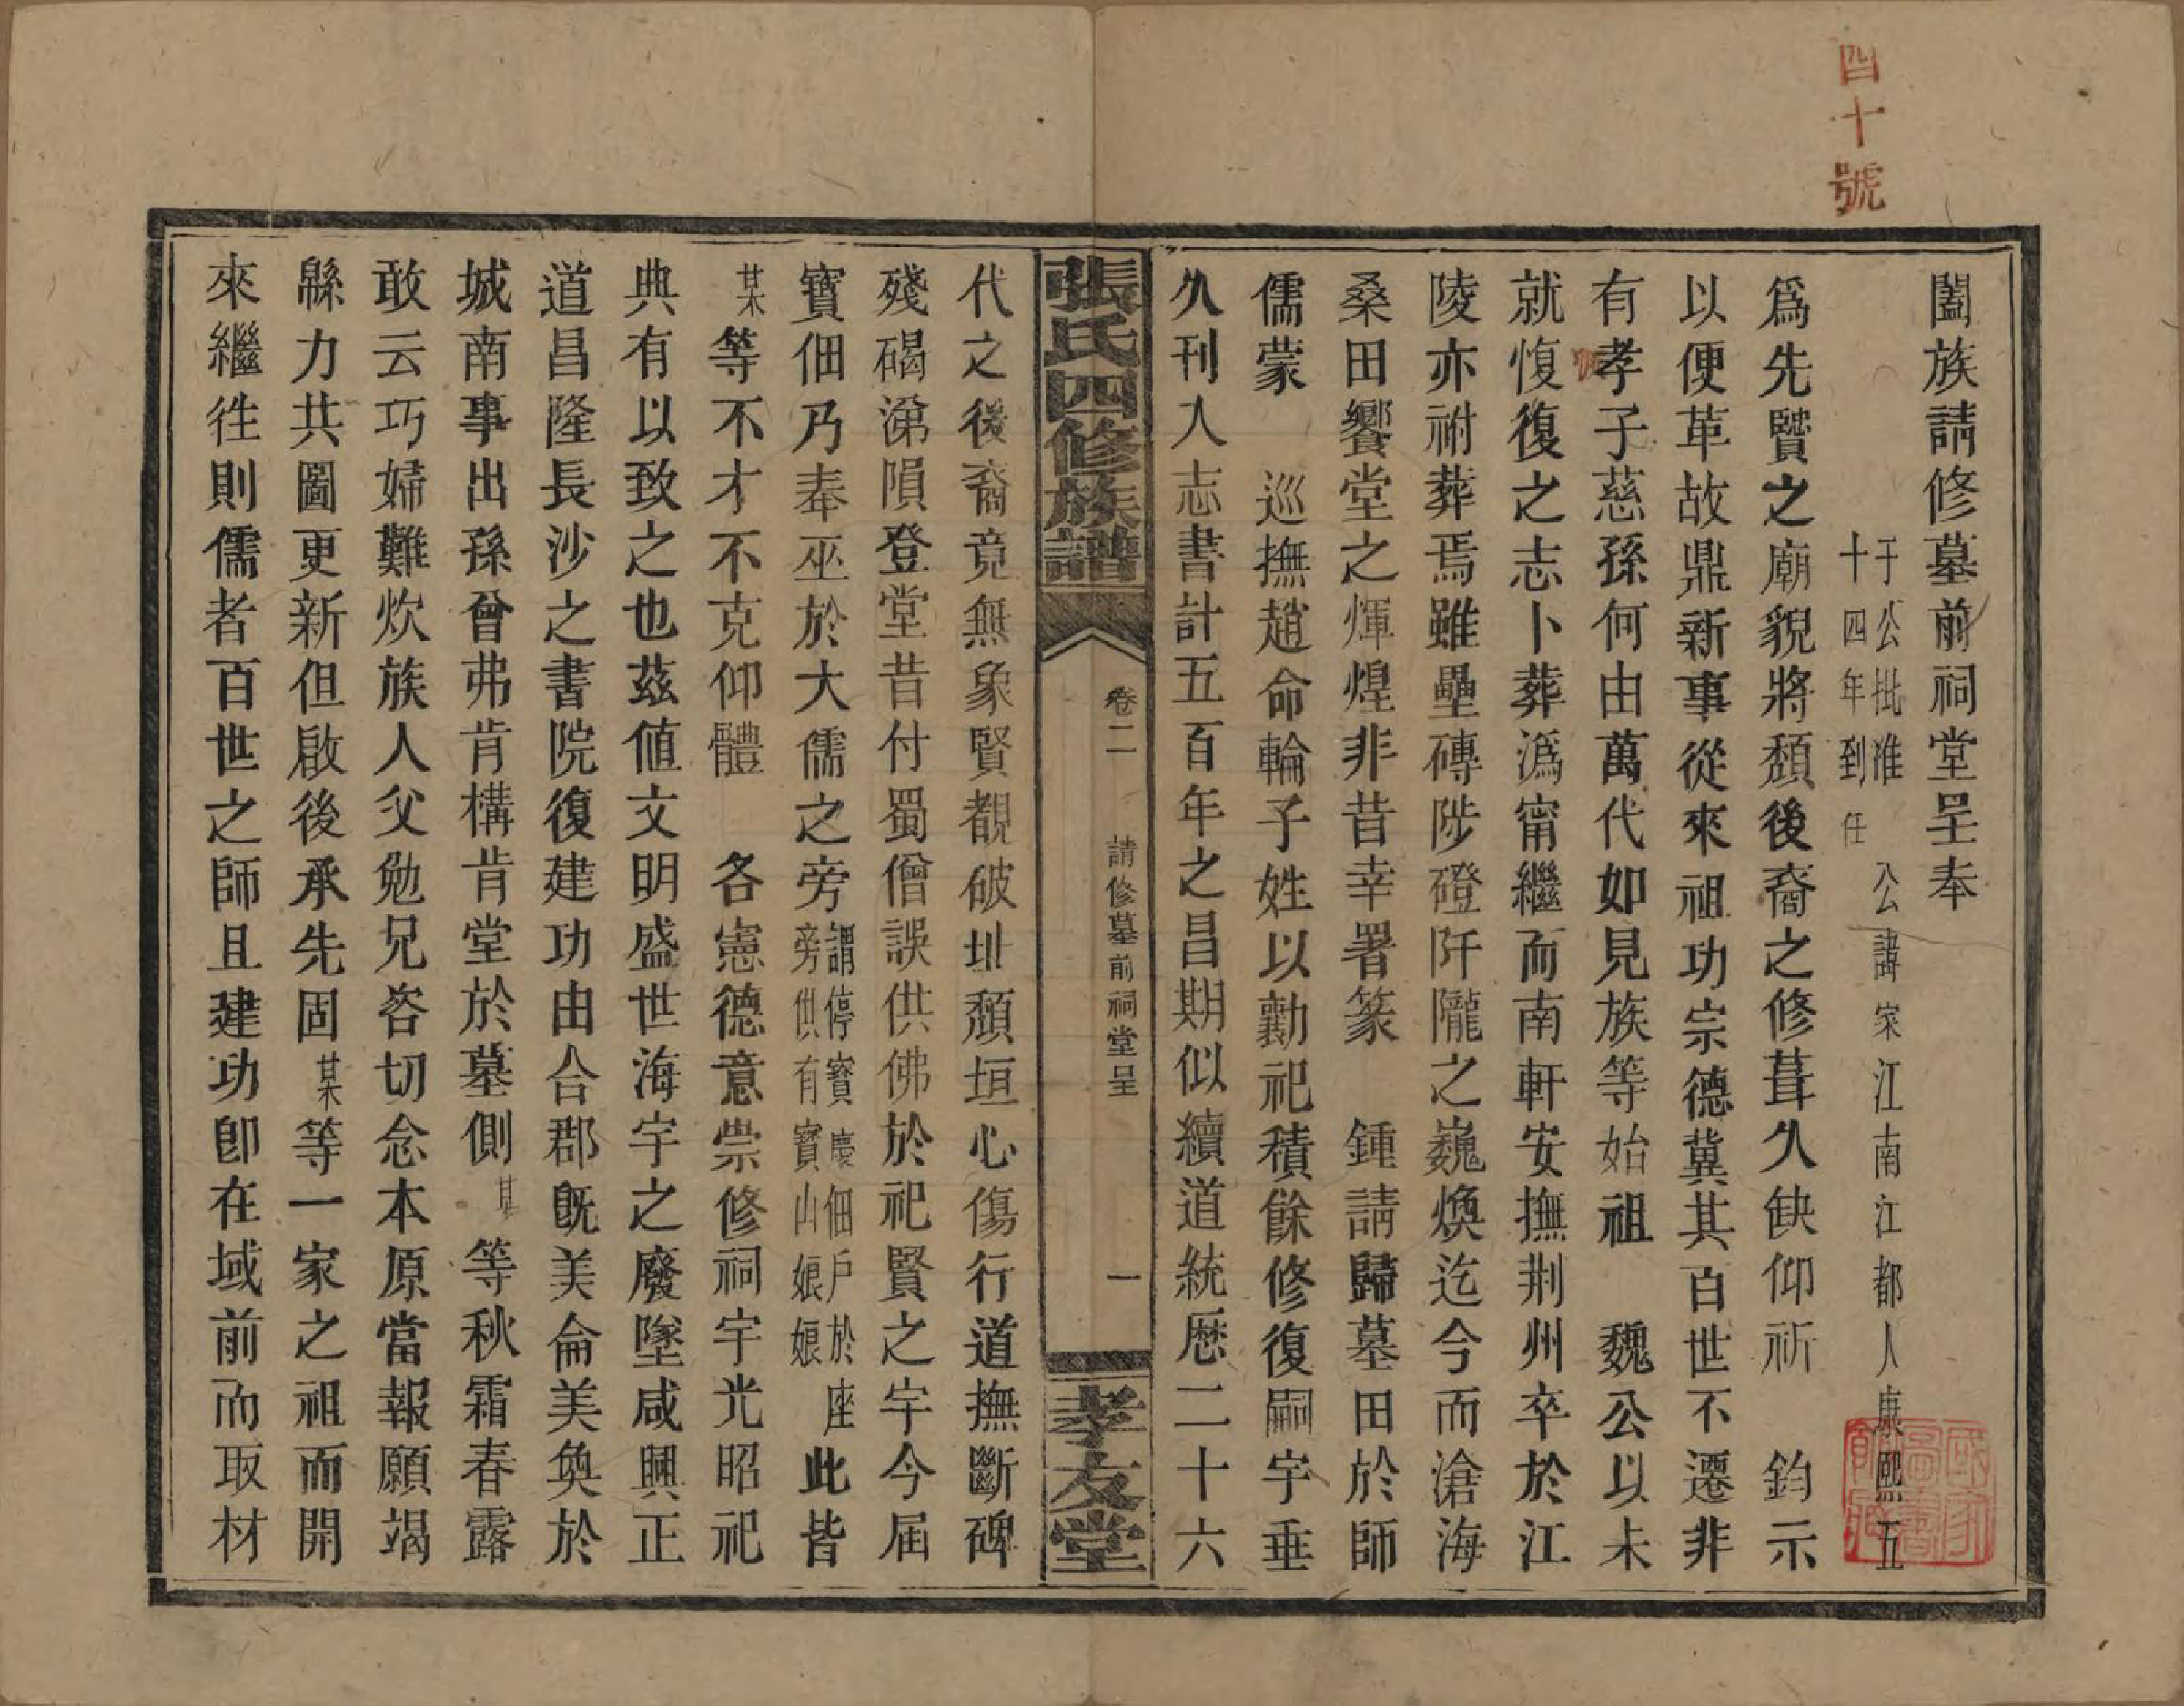 四十號
闔族請修墓前祠堂呈奉
于公批准　公諱家江南江都人康熙五
十四年到任
爲先賢之廟貌將頽後裔之修葺久缺仰祈　鈞示
以便革故鼎新事從來祖功宗德冀其百世不遷非
有孝子慈孫何由萬代如見族等始祖　魏公以未
就愎復之志卜葬潙甯繼而南軒安撫荆州卒於江
陵亦祔葬焉雖壘磚陟磴阡隴之巍煥迄今而滄海
桑田饗堂之煇煌非昔幸署篆　鍾請歸墓田於師
儒蒙　巡撫趙命輪子姓以勷祀積餘修復嗣宇垂
久刊入志書計五百年之昌期似續道統歷二十六
張氏四修族譜
卷二　請修墓前祠堂呈　一
孝友堂
代之後裔竟無象賢覩破址頽垣心傷行道撫斷碑
殘碣涕隕登堂昔付蜀僧誤供佛於祀賢之宇今屆
寶佃乃奉巫於大儒之旁謂停寶慶佃戶於座旁供有寶山娘娘此皆
某等不才不克仰體　各憲德意崇修祠宇光昭祀
典有以致之也茲値文明盛世海宇之廢墜咸興正
道昌隆長沙之書院復建功由合郡旣美侖美奐於
城南事出孫曾弗肯構肯堂於墓側某等秋霜春露
敢云巧婦難炊族人父勉兄咨切念本原當報願竭
緜力共圖更新但啟後承先固某等一家之祖而開
來繼徃則儒者百世之師且建功卽在域前而取材